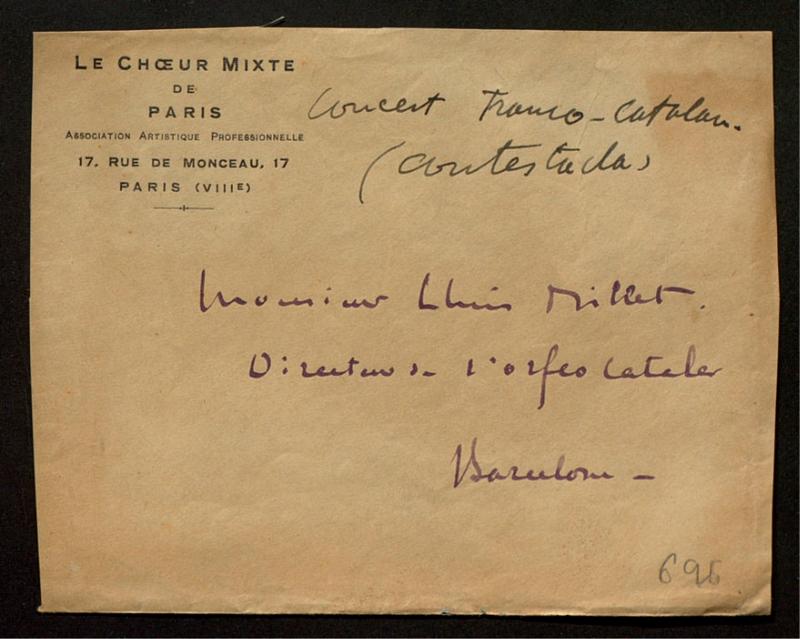 LE CHŒUR MIXTE
DE
PARIS
ASSOCIATION ARTISTIQUE PROFESSIONNELLE
17, RUE DE MONCEAU, 17
PARIS (VIIIE)
Concert Franco-Catalan.
(Contestada)
Monsieur Lluis Millet.
Directeur de l'orfeo Catala
Barcelone -
696